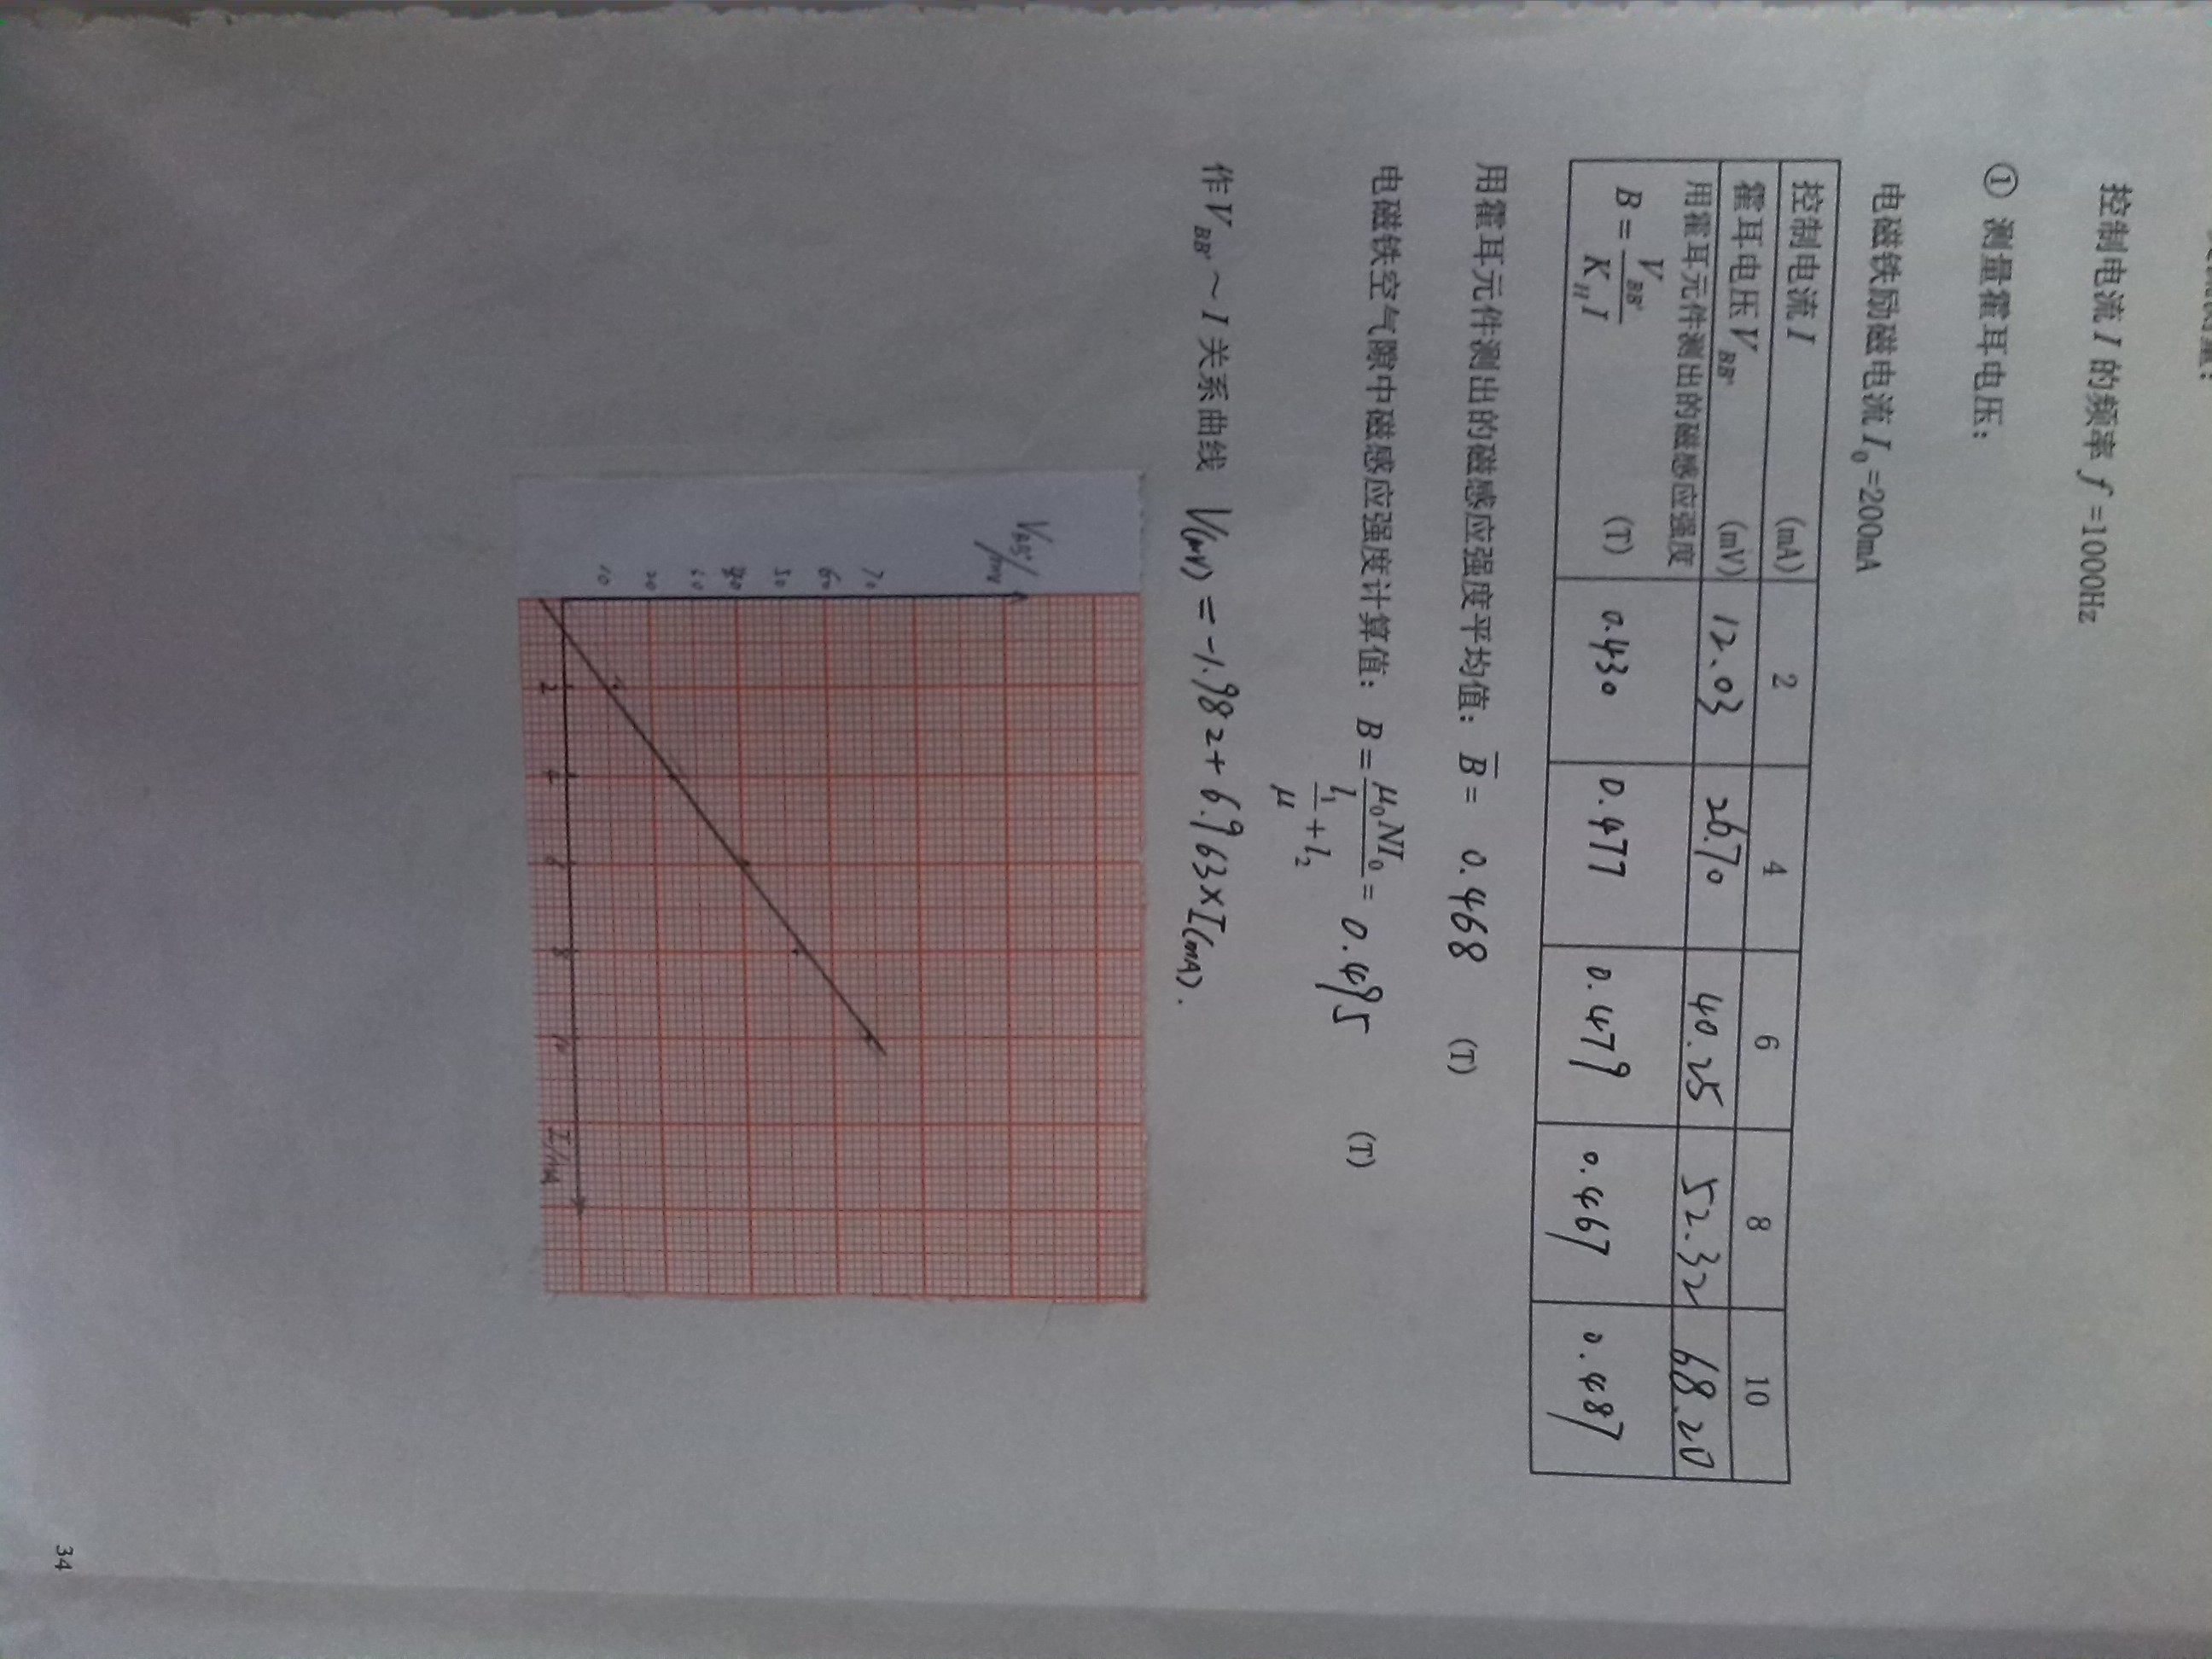 控制电流 I 的频率 f =1000Hz
① 测量霍耳电压：
电磁铁励磁电流 I₀ =200mA
控制电流 I (mA) 2 4 6 8 10
霍耳电压 V_BB' (mV) 12.03 26.70 40.25 52.32 68.20
用霍耳元件测出的磁感应强度
B = V_BB' / K_H I (T) 0.430 0.477 0.479 0.467 0.487
用霍耳元件测出的磁感应强度平均值： B̄ = 0.468 (T)
电磁铁空气隙中磁感应强度计算值： B = μ₀NI₀ / (l₁/μ + l₂) = 0.495 (T)
作 V_BB' ～ I 关系曲线 V(mV) = -1.982 + 6.963×I(mA).
V_BB'/mv
70
60
50
40
20
10
2 4 6 8 10 I/mA
34